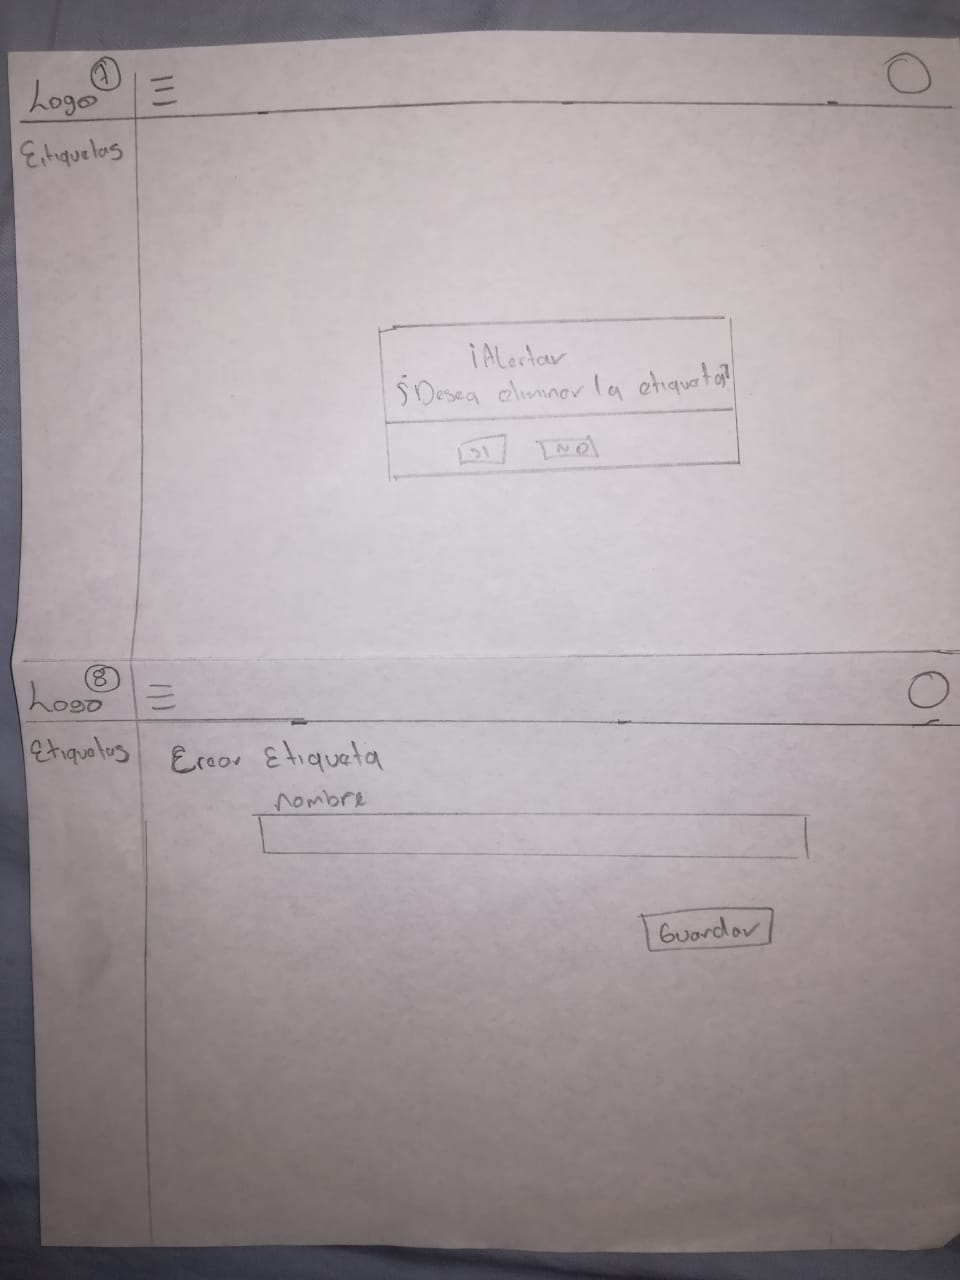 Logo 7
Etiquetas
¡Alertar
¿Desea eliminar la etiqueta?
SI NO
Logo 8
Etiquetas
Crear Etiqueta
nombre
Guardar